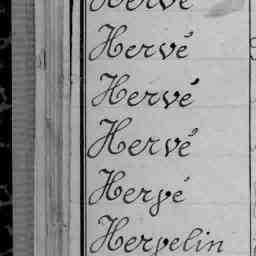 Hervé
Hervé
Hervé
Hervé
Hervé
Hervelin